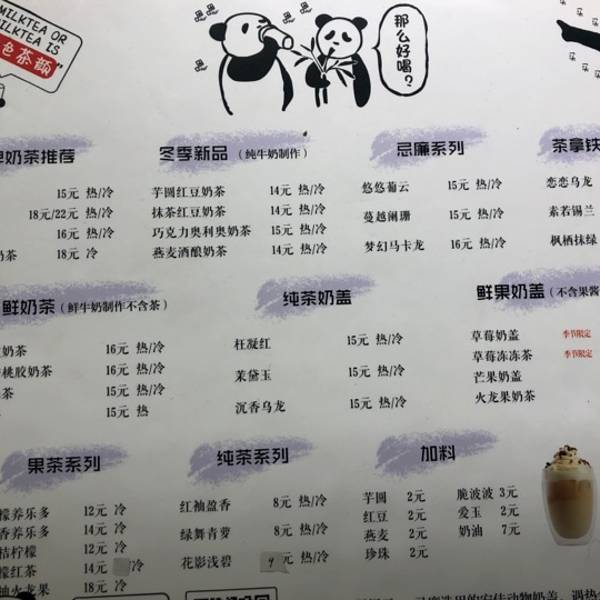 MILKTEA OR
MILKTEA IS
色茶颜"
那么好喝?
奶茶推荐
15元 热/冷
18元/22元 热/冷
16元 热/冷
奶茶 18元 冷
冬季新品（纯牛奶制作）
芋圆红豆奶茶 14元 热/冷
抹茶红豆奶茶 14元 热/冷
巧克力奥利奥奶茶 15元 热/冷
燕麦酒酿奶茶 14元 热/冷
忌廉系列
悠悠葡云 15元 热/冷
蔓越阑珊 15元 热/冷
梦幻马卡龙 16元 热/冷
茶拿铁
恋恋乌龙
素若锡兰
枫栖抹绿
鲜奶茶（鲜牛奶制作不含茶）
奶茶 16元 热/冷
桃胶奶茶 16元 热/冷
茶 15元 热/冷
15元 热
纯茶奶盖
枉凝红 15元 热/冷
茉黛玉 15元 热/冷
沉香乌龙 15元 热/冷
鲜果奶盖（不含果酱
草莓奶盖 季节限定
草莓冻冻茶 季节限定
芒果奶盖
火龙果奶茶
果茶系列
檬养乐多 12元 冷
香养乐多 14元 冷
桔柠檬 12元 冷
檬红茶 14元 /冷
柚火龙果 18元 冷
纯茶系列
红袖盈香 8元 热/冷
绿舞青萝 8元 热/冷
花影浅碧 9元 热/冷
加料
芋圆 2元 脆波波 3元
红豆 2元 爱玉 2元
燕麦 2元 奶油 7元
珍珠 2元